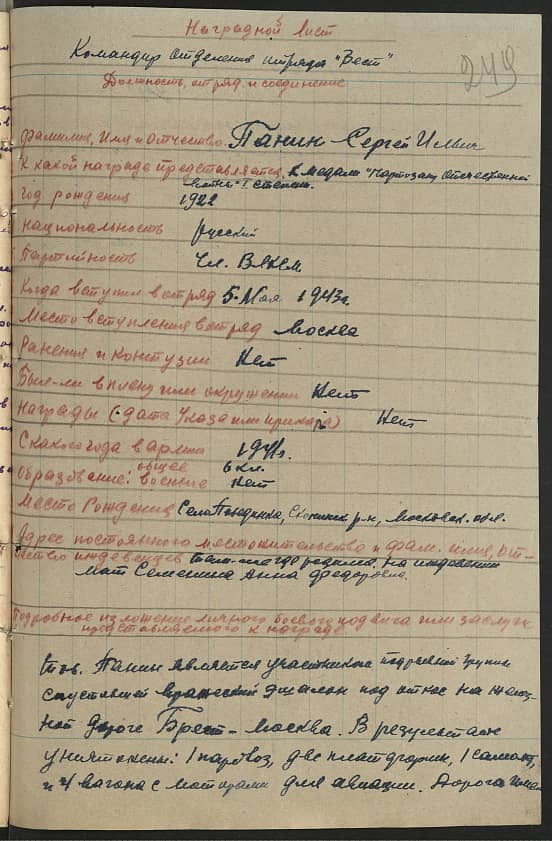 Наградной лист
Командир отделения отряда "Вест"
249
Должность, отряд и соединение
Фамилия, Имя и Отчество Панин Сергей Ильич
К какой награде представляется К медали "Партизану Отечественной
войны" I степени.
Год рождения 1922
Национальность русский
Партийность Чл. ВЛКСМ
Когда вступил в отряд 5. Мая 1943г.
Место вступления в отряд Москва
Ранения и контузии Нет
Был-ли в плену или окружении Нет
Награды (дата Указа или приказа) Нет
С какого года в армии 1941г.
Образование: общее 6 кл.
военное нет
Место Рождения Село Победника, р-н, Московск. обл.
Адрес постоянного местожительства и фам. имя, от-
чество иждевенцев там-же где родился. На иждевении
мать Семенина Анна Федоровна.
Подробное изложение личного боевого подвига или заслуги
представляемого к награде
Тов. Панин является участником подрывной группы
спустившей вражеский эшалон под откос на желез-
ной дороге Брест-Москва. В результате
уничтожены: 1 паровоз, две платформы, 1 самолет,
и 4 вагона с моторами для авиации. Дорога